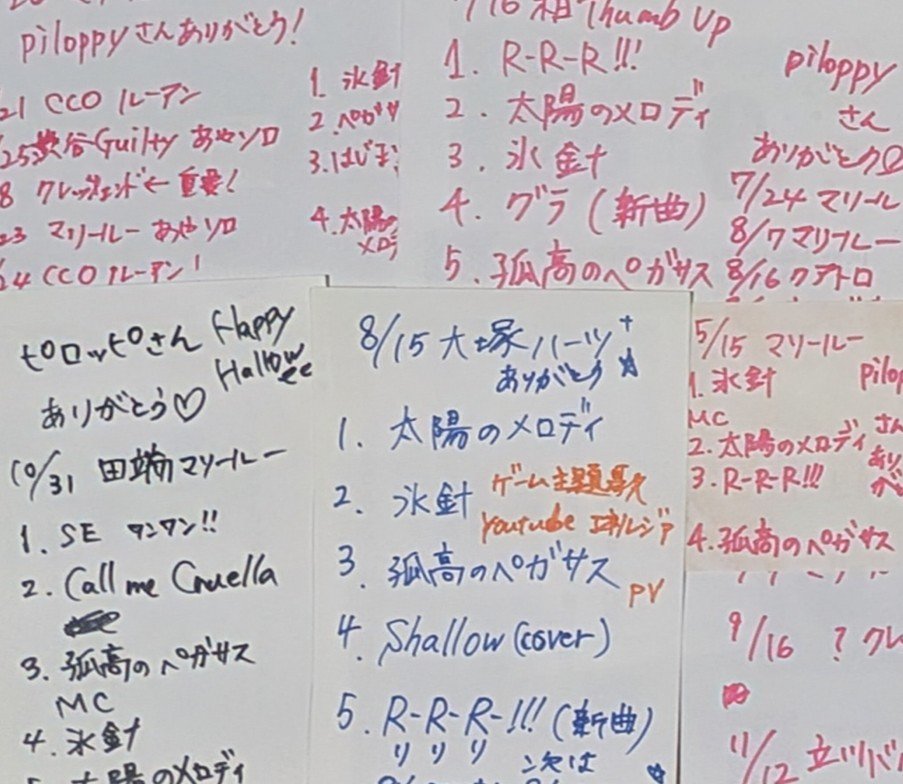 piloppyさんありがとう!
21 CCO ルーアン
25渋谷Guilty あやソロ
8 クレッシェンド←重要!
23 マリールー あやソロ
24 CCO ルーアン!
1. 氷針
2. ペガサ
3. はじま
4. 太陽の
メロデ
7/16 柏 Thumb Up
1. R-R-R!!!
2. 太陽のメロディ
3. 氷針
4. グラ(新曲)
5. 孤高のペガサス
piloppy
さん
ありがとう♡
7/24 マリール
8/7 マリールー
8/16 クアトロ
ピロッピさん Happy
Hallowee
ありがとう♡
10/31 田端マリールー
1. SE ワンワン!!
2. Call me Cruella
3. 孤高のペガサス
MC
4. 氷針
5. 太陽のメロディ
8/15 大塚ハーツ+
ありがとう☆
1. 太陽のメロディ
2. 氷針 ゲーム主題歌
Youtube エネルジア
3. 孤高のペガサス
PV
4. Shallow (cover)
5. R-R-R-!!! (新曲)
リ リ リ
次は
5/15 マリールー
1. 氷針
MC
2. 太陽のメロディ
3. R-R-R!!!
4. 孤高のペガサス
pilo
さん
あり
がと
9/16 ? クレ
11/12 立川バ